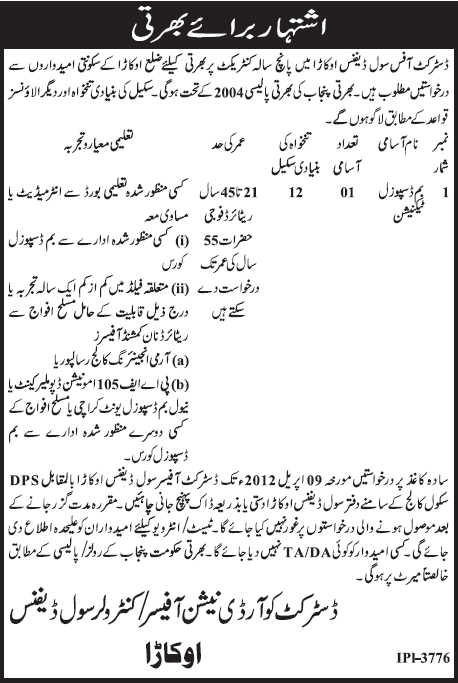 اشتہار برائے بھرتی
ڈسٹرکٹ آفس سول ڈیفنس اوکاڑا میں پانچ سالہ کنٹریکٹ پر بھرتی کیلئے ضلع اوکاڑا کے سکونتی امیدواروں سے
درخواستیں مطلوب ہیں۔ بھرتی پنجاب کی بھرتی پالیسی 2004 کے تحت ہوگی۔ سکیل کی بنیادی تنخواہ اور دیگر الاؤنسز
قواعد کے مطابق لاگو ہوں گے۔
نمبر شمار
نام آسامی
تعداد آسامی
تنخواہ کی بنیادی سکیل
عمر کی حد
تعلیمی معیار و تجربہ
1
بم ڈسپوزل
ٹیکنیشن
01
12
21 تا 45 سال
ریٹائرڈ فوجی
حضرات 55
سال کی عمر تک
درخواست دے
سکتے ہیں
کسی منظور شدہ تعلیمی بورڈ سے انٹرمیڈیٹ یا
مساوی معہ
(i) کسی منظور شدہ ادارے سے بم ڈسپوزل
کورس
(ii) متعلقہ فیلڈ میں کم از کم ایک سالہ تجربہ یا
درج ذیل قابلیت کے حامل مسلح افواج سے
ریٹائرڈ نان کمشنڈ آفیسرز
(a) آرمی انجینئرنگ کالج رسالپور یا
(b) پی اے ایف 105 امونیشن ڈپو ملیر کینٹ یا
نیول بم ڈسپوزل یونٹ کراچی یا مسلح افواج کے
کسی دوسرے منظور شدہ ادارے سے بم
ڈسپوزل کورس۔
سادہ کاغذ پر درخواستیں مورخہ 09 اپریل 2012ء تک ڈسٹرکٹ آفیسر سول ڈیفنس اوکاڑا بالمقابل DPS
سکول کالج کے سامنے دفتر سول ڈیفنس اوکاڑا دستی یا بذریعہ ڈاک پہنچ جانی چاہئیں۔ مقررہ مدت گزر جانے کے
بعد موصول ہونے والی درخواستوں پر غور نہیں کیا جائے گا۔ ٹیسٹ/انٹرویو کیلئے امیدواران کو علیحدہ اطلاع دی
جائے گی۔ کسی امیدوار کو کوئی TA/DA نہیں دیا جائے گا۔ بھرتی حکومت پنجاب کے رولز/پالیسی کے مطابق
خالصتاً میرٹ پر ہوگی۔
ڈسٹرکٹ کوآرڈی نیشن آفیسر/کنٹرولر سول ڈیفنس
اوکاڑا
IPI-3776